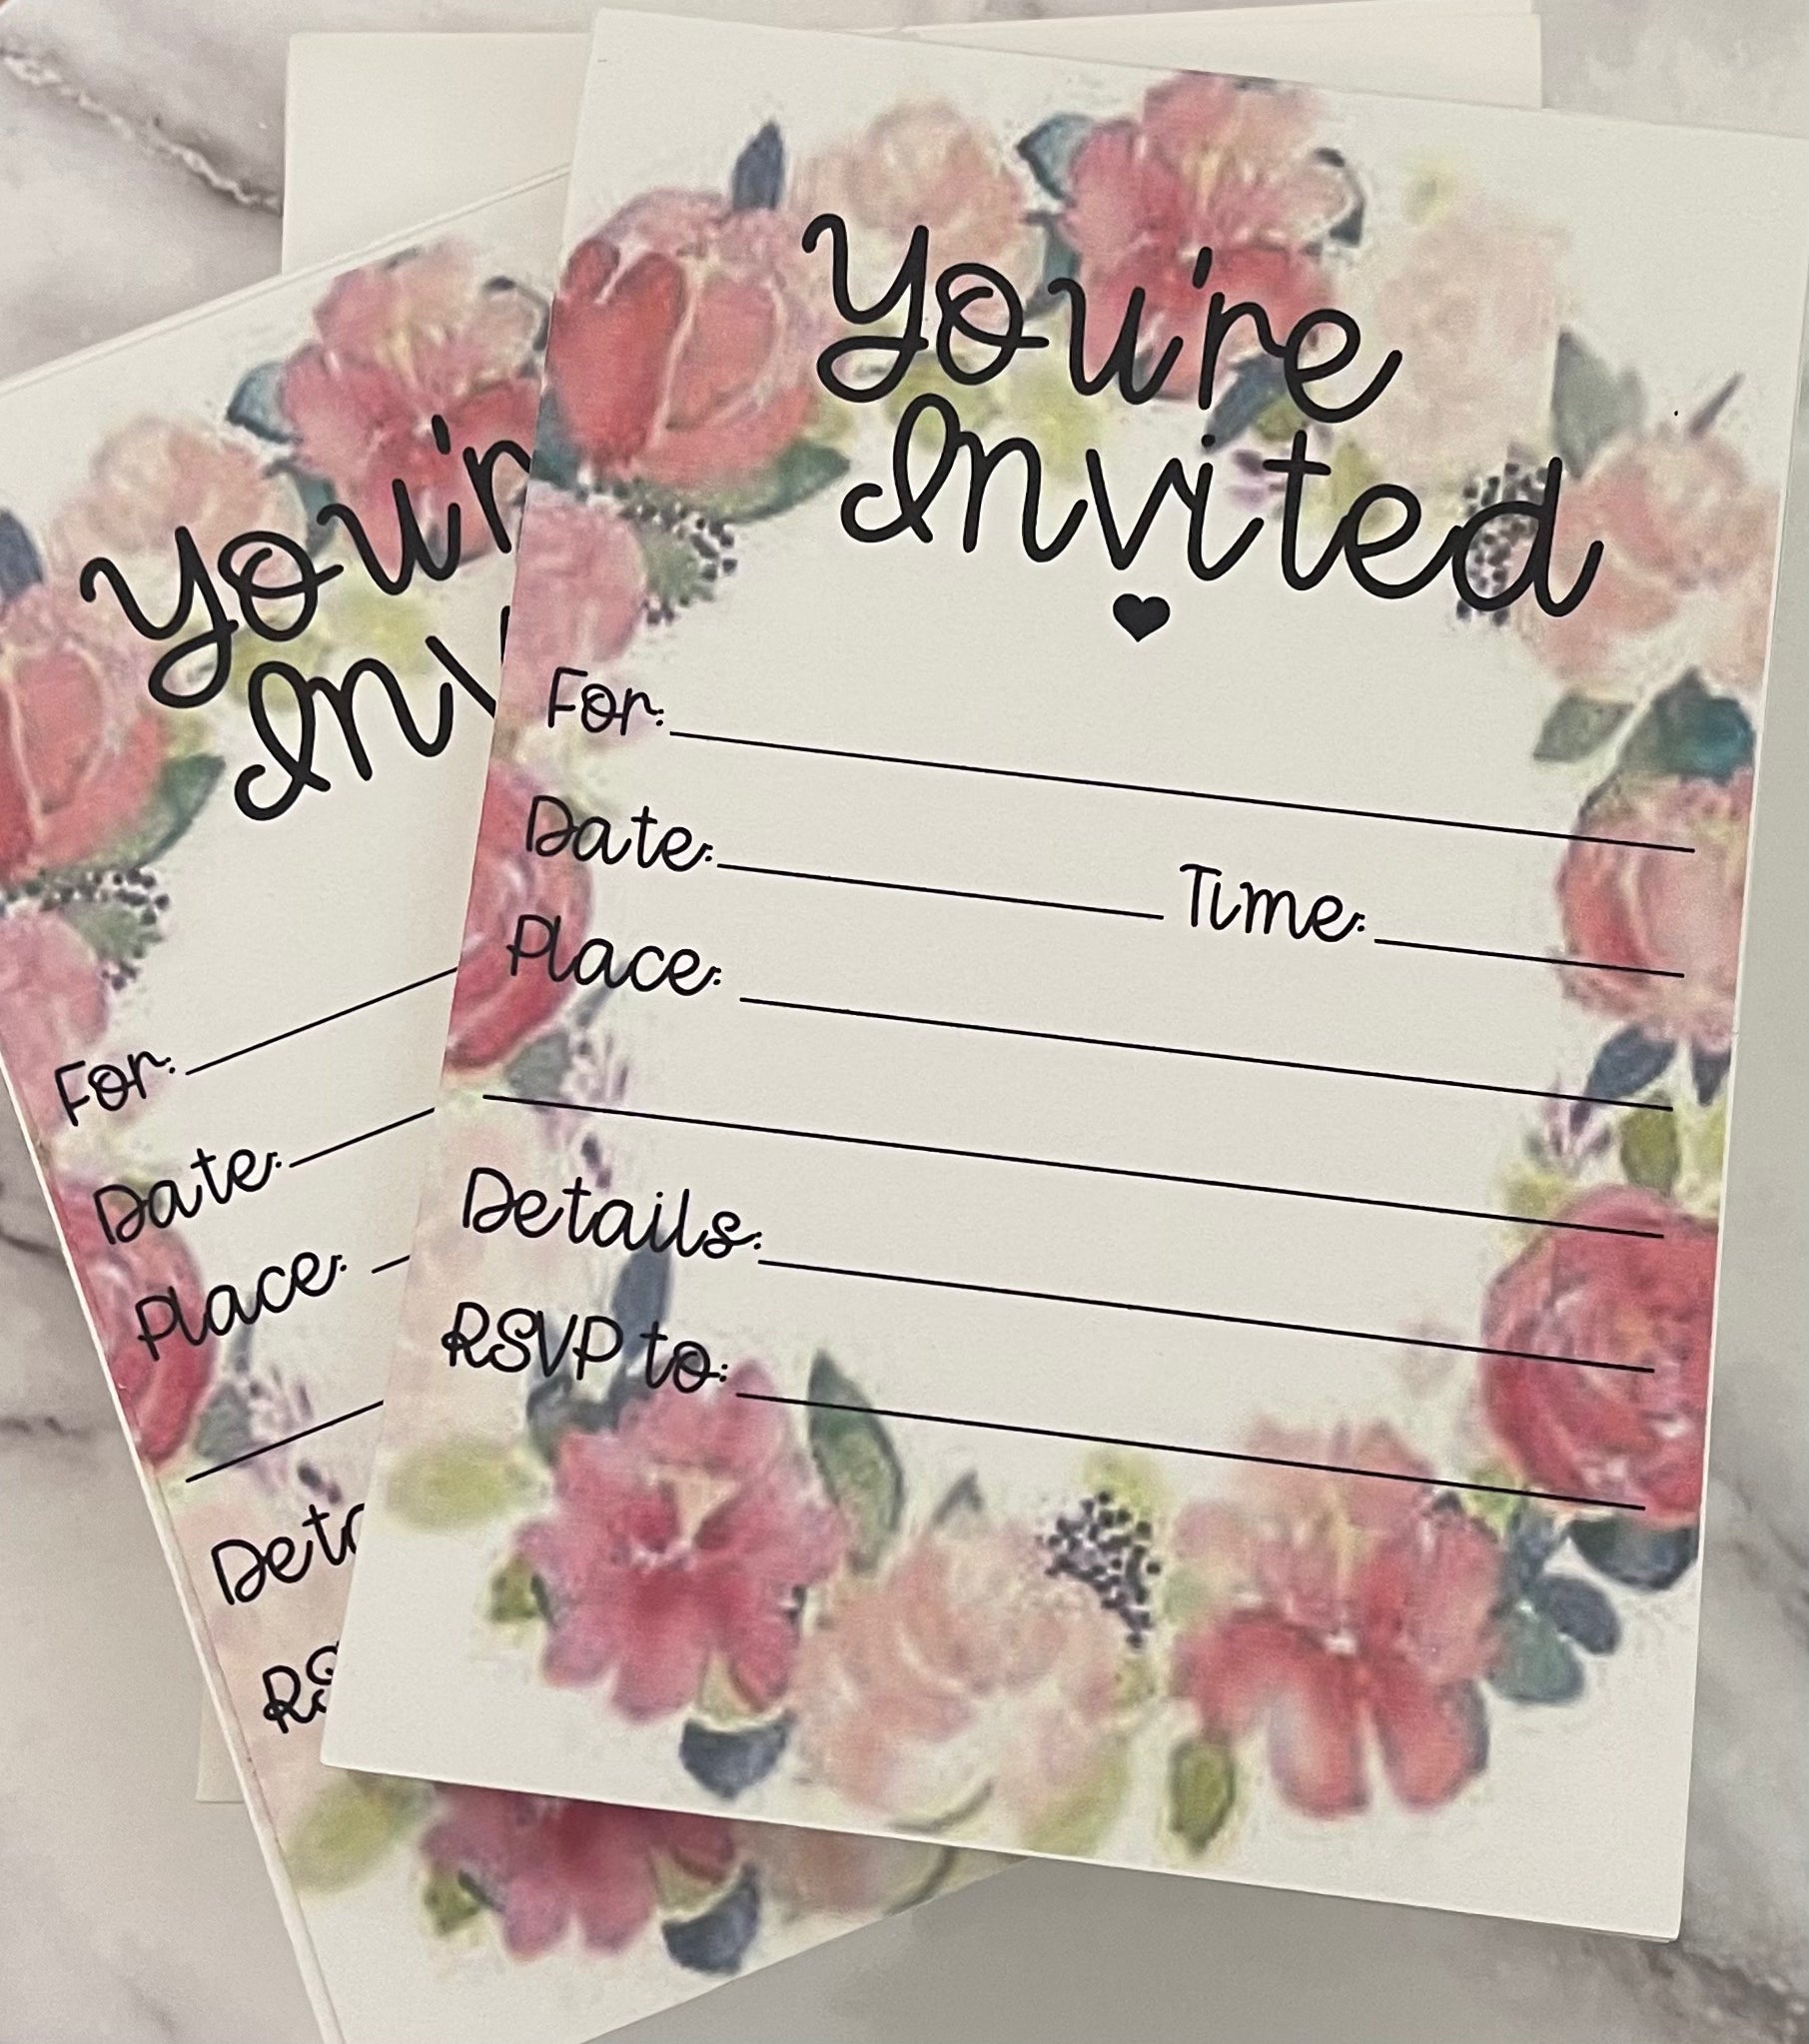 You're
Invited
For:
Date: Time:
Place:
Details:
RSVP to:
You'r
Inv
For:
Date:
Place:
Deta
RS